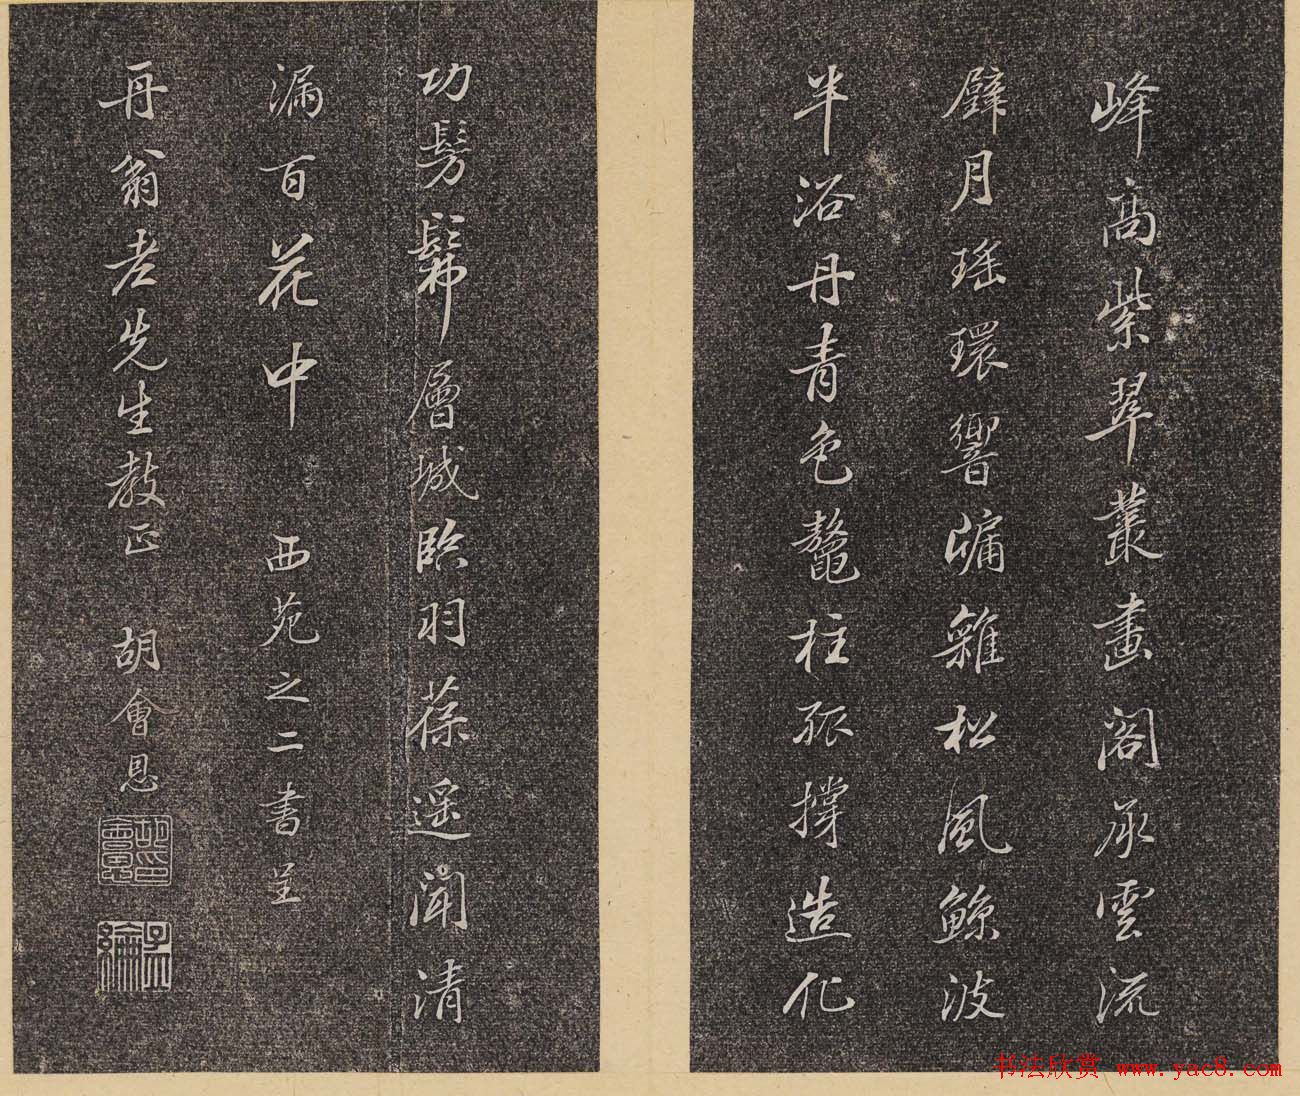 峰高紫翠叢畫閣承雲流
璧月瑤環響牖雜松風鯨波
半浴丹青色鼇柱孤撐造化
功髣髴層城臨羽葆遥聞清
漏百花中　西苑之二書呈
再翁老先生教正　胡會恩
胡會恩印
孟綸
书法欣赏 www.yac8.com